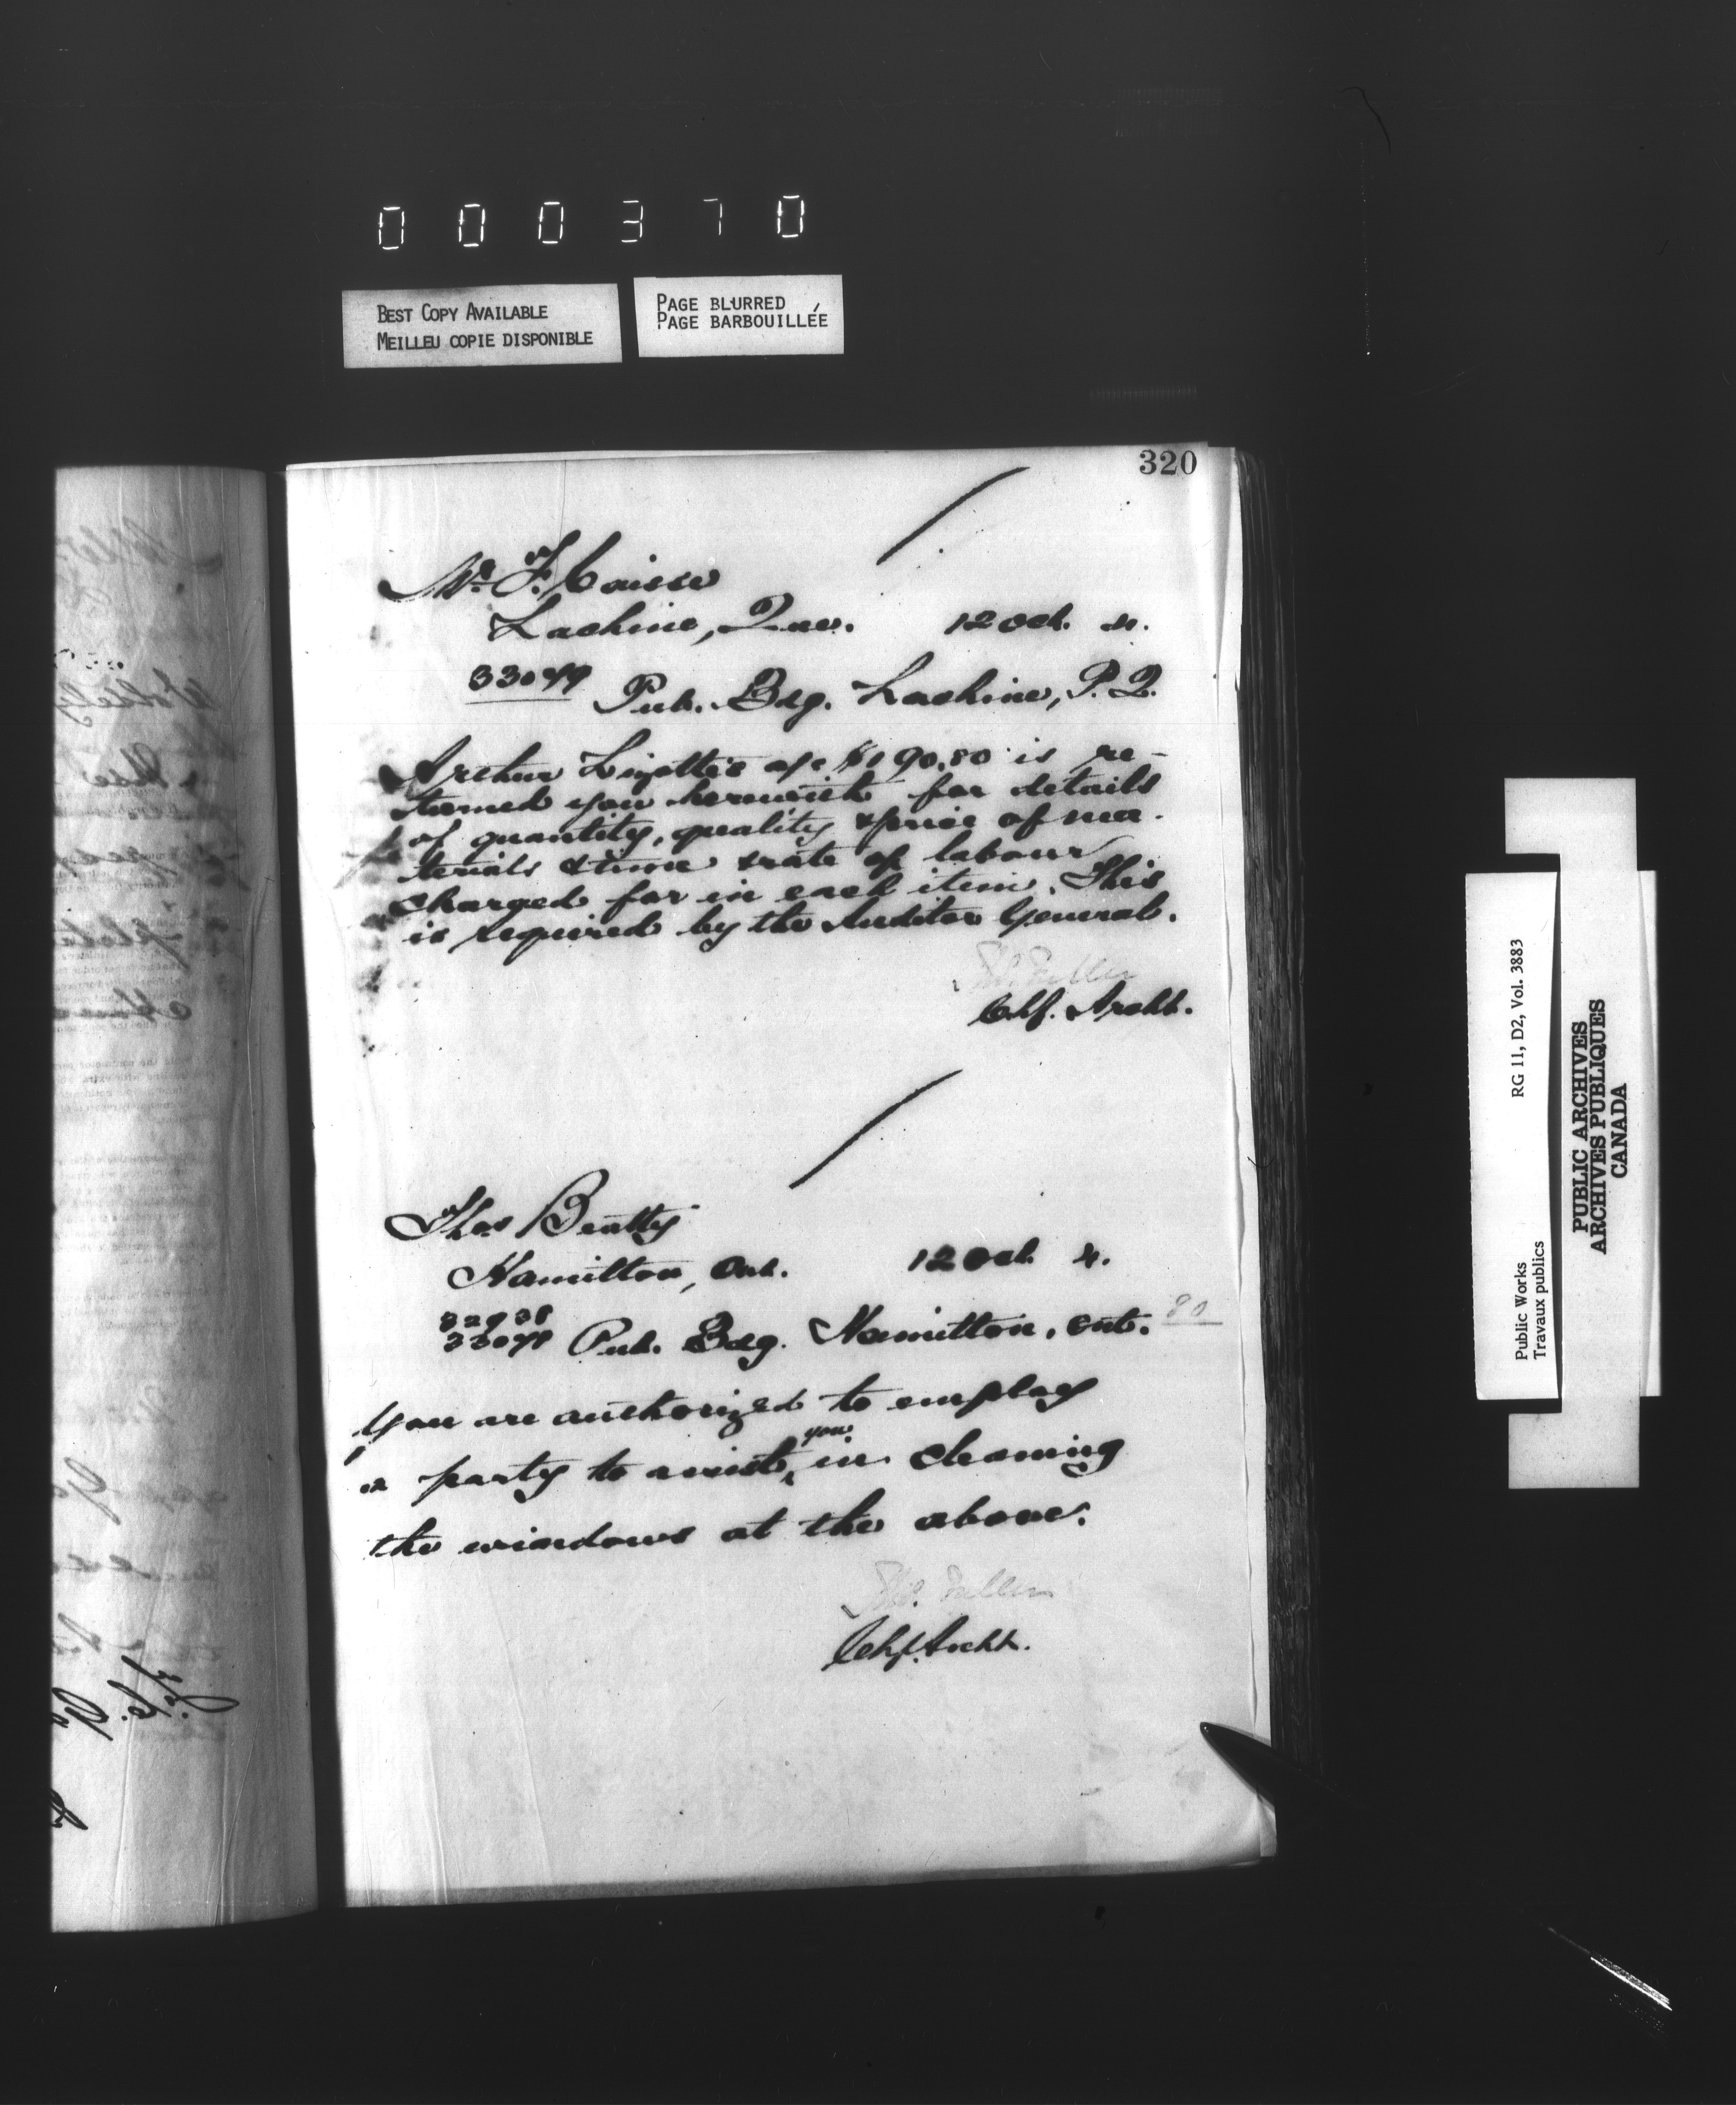 000370
BEST COPY AVAILABLE
MEILLEU COPIE DISPONIBLE
PAGE BLURRED
PAGE BARBOUILLÉE
320
Mr. F. Caisse
Lachine, Que. 12 Oct. 4.
33079 Pub. Bdg. Lachine, P.Q.
Arthur Lizotte's a/c $190.80 is re-
turned you herewith for details
of quantity, quality & price of ma-
terials & time & rate of labour
charged for in each item. This
is required by the Auditor General.
Thos. Fuller
Chf. Archt.
Thos Beatty
Hamilton, Ont. 12 Oct. 4.
32938
33078 Pub. Bdg. Hamilton, Ont. 80
You are authorized to employ
a party to assist ^you in cleaning
the windows at the above.
Thos. Fuller
Chf. Archt.
Public Works
Travaux publics
RG 11, D2, Vol. 3883
PUBLIC ARCHIVES
ARCHIVES PUBLIQUES
CANADA